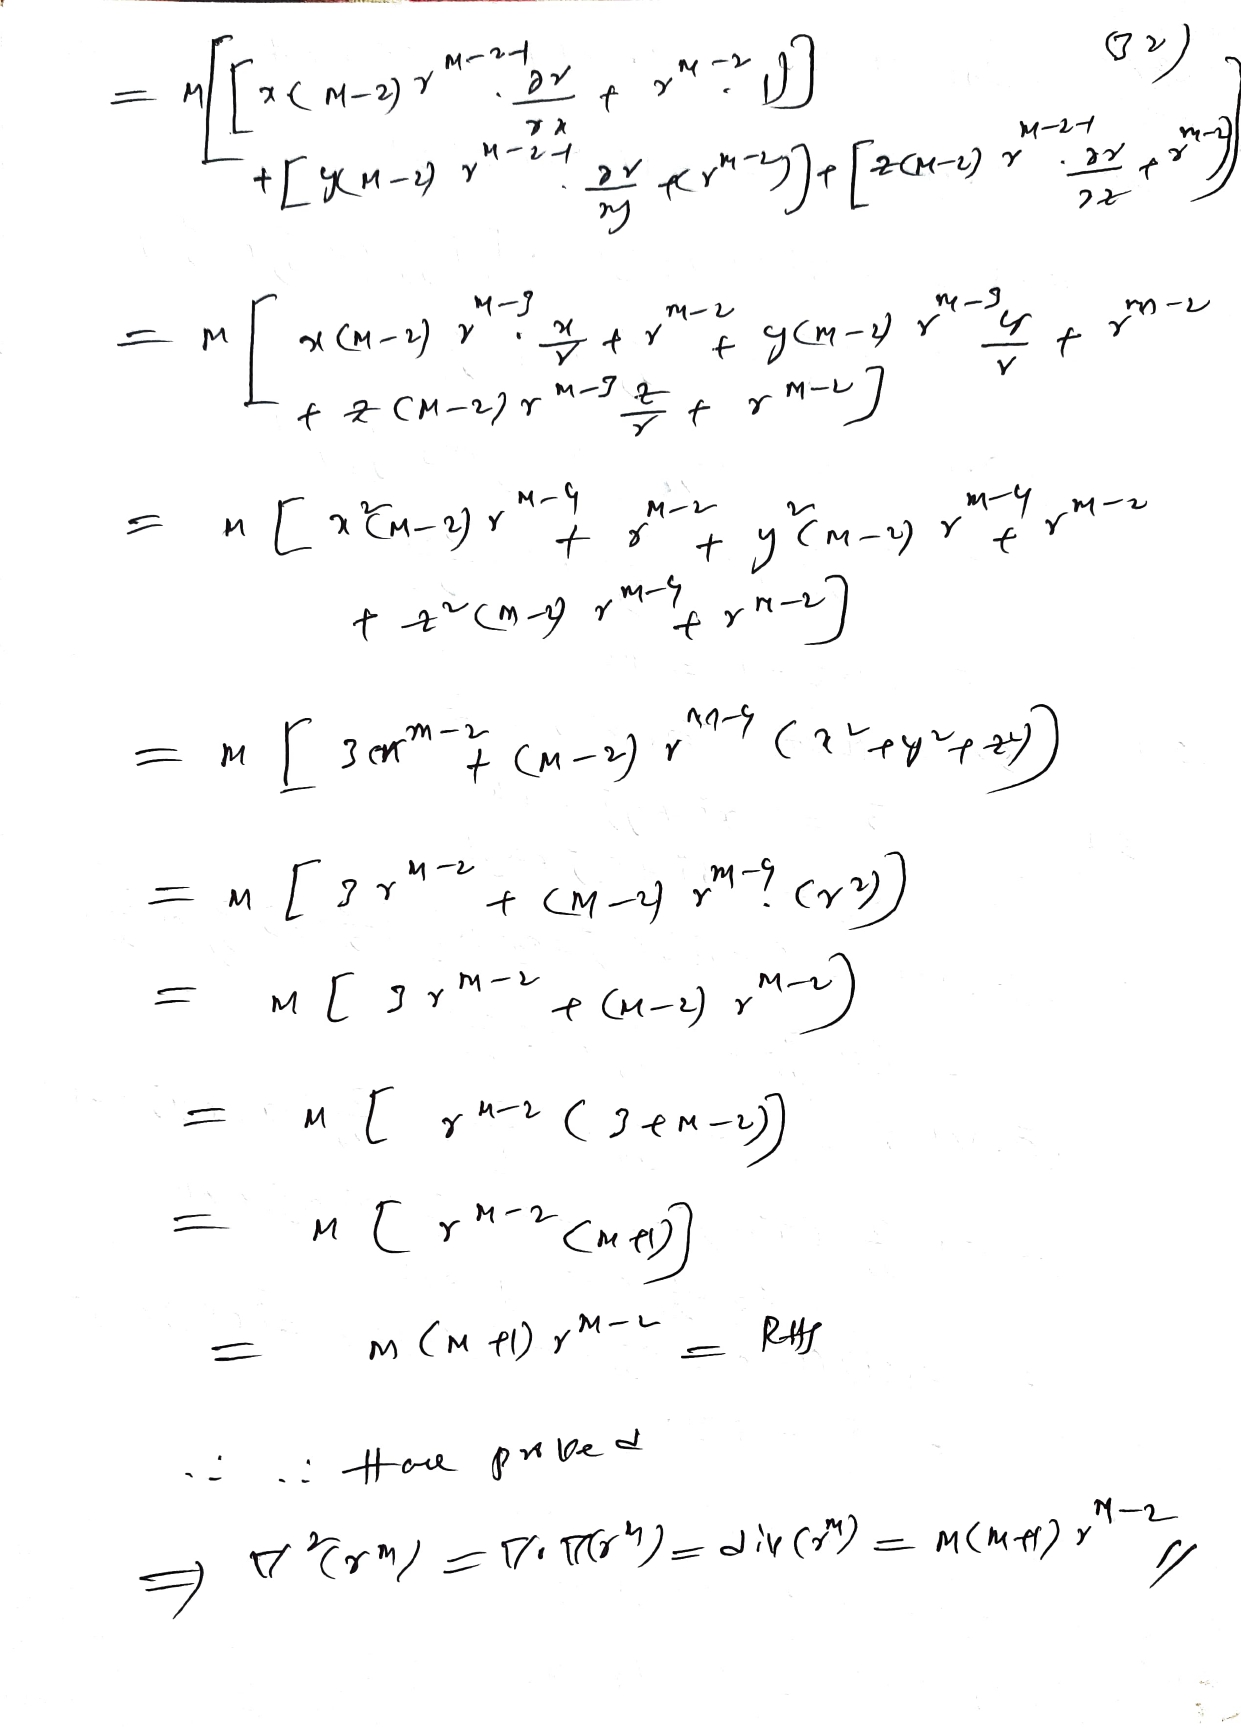 (32)
= M[[x(M-2) r^{M-2-1} . ∂r/∂x + r^{M-2} . 1]
+ [y(M-2) r^{M-2-1} . ∂r/∂y + (r^{M-2})] + [z(M-2) r^{M-2-1} . ∂r/∂z + r^{M-2}]]
= M[x(M-2) r^{M-3} . x/r + r^{M-2} + y(M-2) r^{M-3} y/r + r^{m-2}
+ z(M-2) r^{M-3} z/r + r^{M-2}]
= M[x²(M-2) r^{M-4} + r^{M-2} + y²(M-2) r^{M-4} + r^{M-2}
+ z²(M-2) r^{M-4} + r^{M-2}]
= M[3 r^{m-2} + (M-2) r^{m-4} (x²+y²+z²)]
= M[3 r^{M-2} + (M-2) r^{M-4} . (r²)]
= M[3 r^{M-2} + (M-2) r^{M-2}]
= M[r^{M-2} (3+M-2)]
= M[r^{M-2} (M+1)]
= M(M+1) r^{M-2} = RHS
∴ ∴ Hence proved
⇒ ∇²(r^m) = ∇.∇(r^m) = div(r^m) = M(M+1) r^{M-2} //